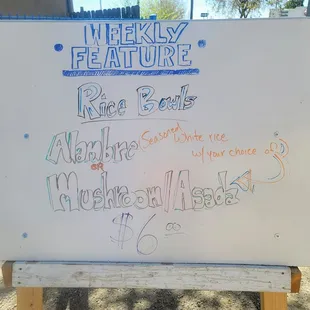 WEEKLY
FEATURE
Rice Bowls
Alambre (Seasoned White rice
w/ your choice of
OR
Mushroom/Asada
$6.00